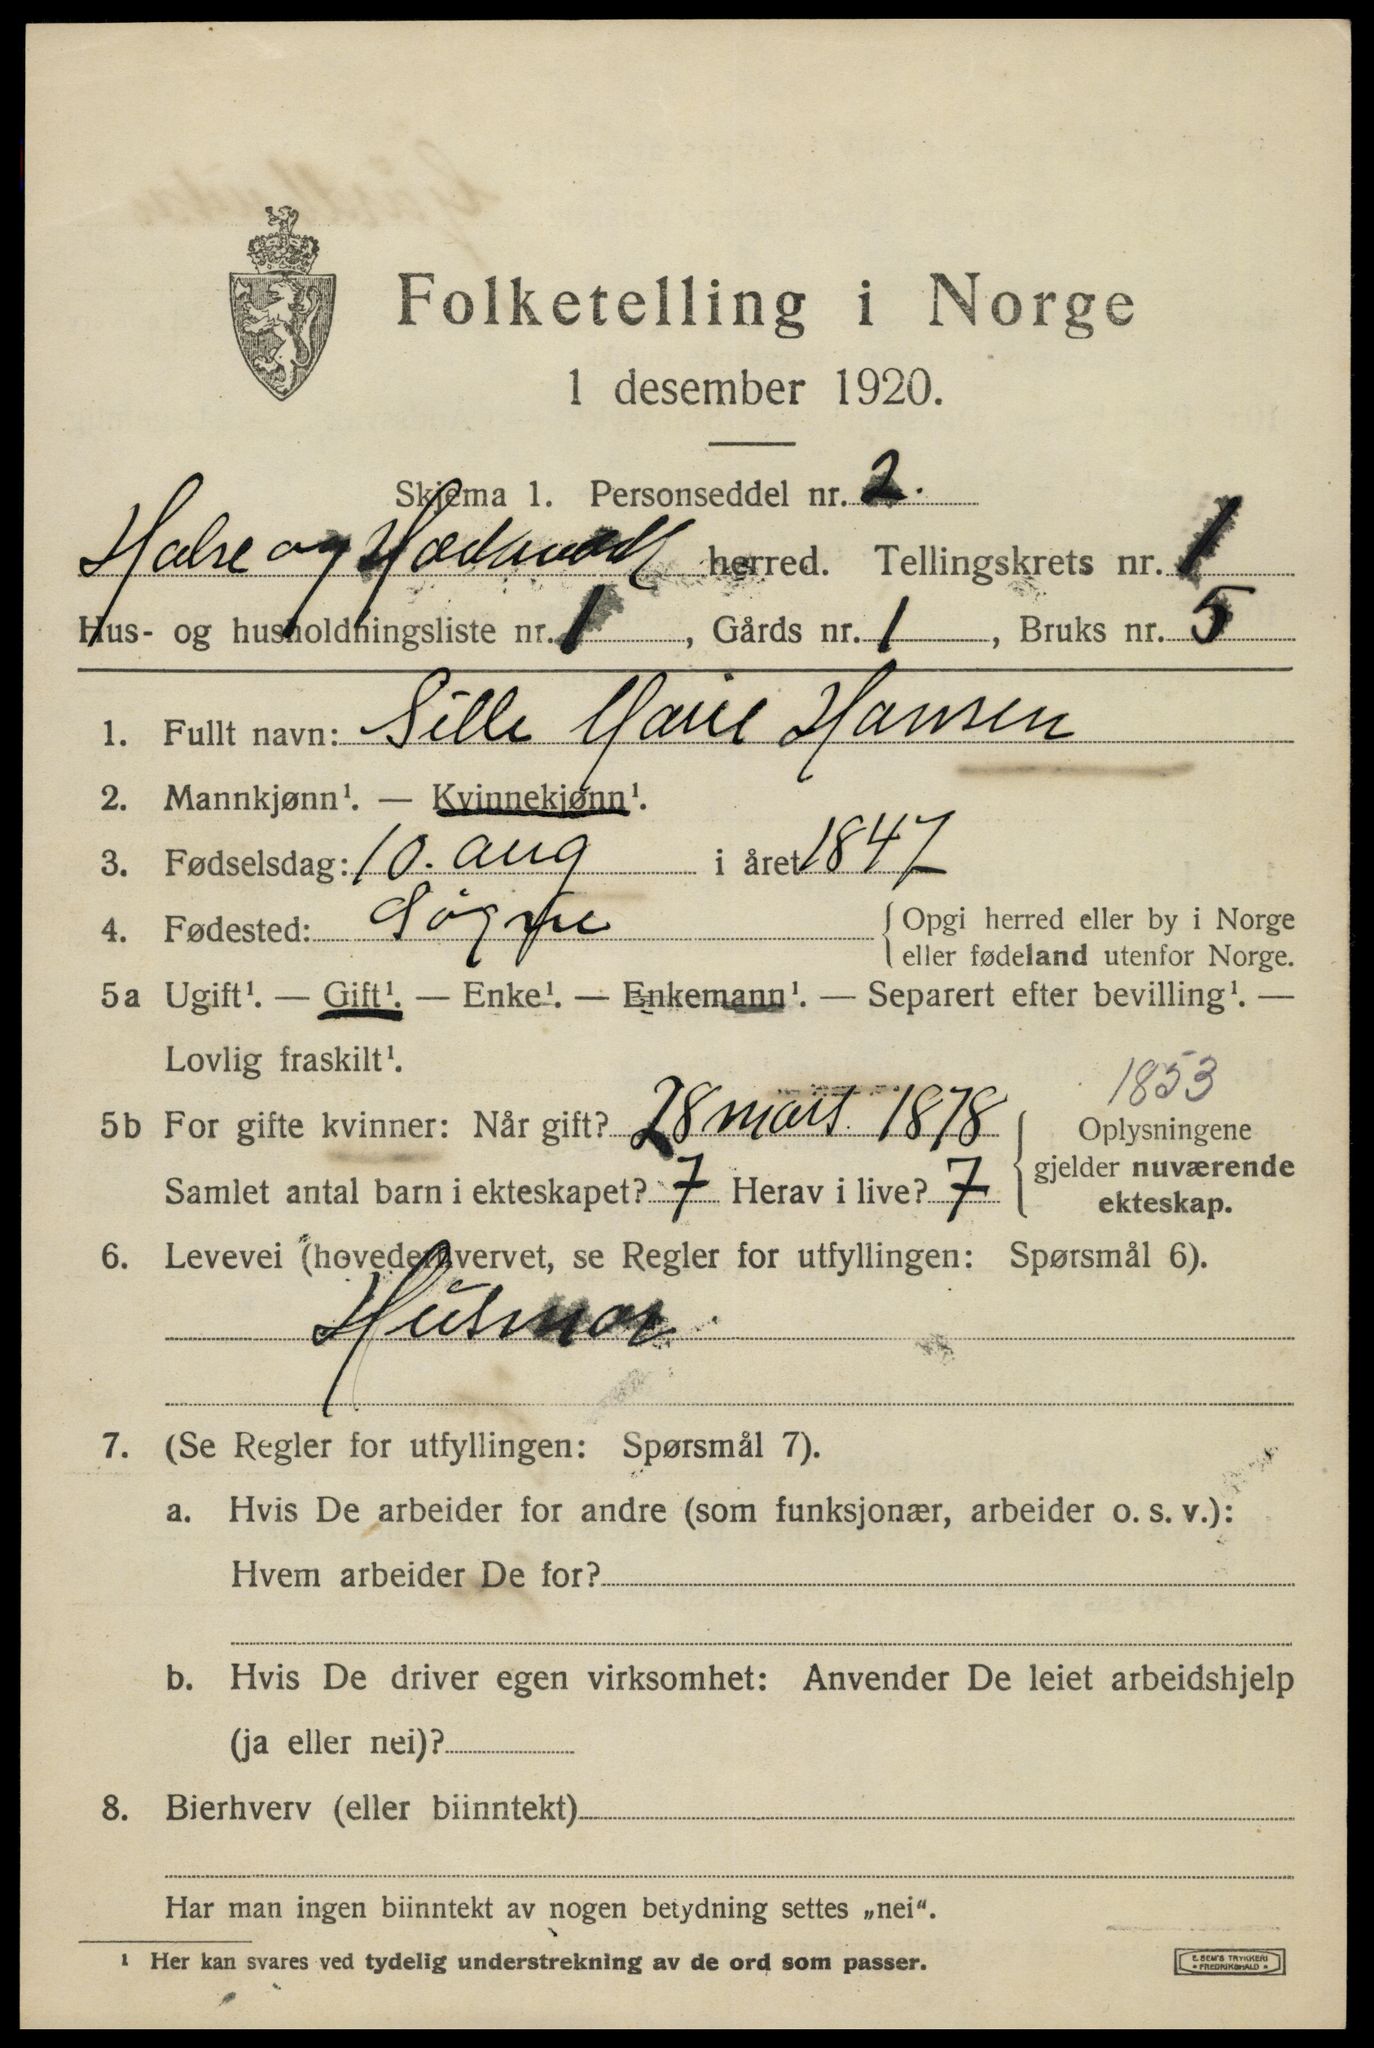 Folketelling i Norge
1 desember 1920.
Skjema 1. Personseddel nr. 2.
Halse og Harkmark herred. Tellingskrets nr. 1
Hus- og husholdningsliste nr. 1, Gårds nr. 1, Bruks nr. 5
1. Fullt navn: Sille Marie Hansen
2. Mannkjønn¹. — Kvinnekjønn¹.
3. Fødselsdag: 10. aug i året 1847
4. Fødested: Søgne {Opgi herred eller by i Norge
eller fødeland utenfor Norge.
5a Ugift¹. — Gift¹. — Enke¹. — Enkemann¹. — Separert efter bevilling¹. —
Lovlig fraskilt¹.
1853
5b For gifte kvinner: Når gift? 28 mars 1878 Oplysningene
gjelder nuværende
Samlet antal barn i ekteskapet? 7 Herav i live? 7
ekteskap.
6. Levevei (hovederhvervet, se Regler for utfyllingen: Spørsmål 6).
Husmor
7. (Se Regler for utfyllingen: Spørsmål 7).
a. Hvis De arbeider for andre (som funksjonær, arbeider o. s. v.):
Hvem arbeider De for?
b. Hvis De driver egen virksomhet: Anvender De leiet arbeidshjelp
(ja eller nei)?
8. Bierhverv (eller biinntekt)
Har man ingen biinntekt av nogen betydning settes „nei“.
¹ Her kan svares ved tydelig understrekning av de ord som passer.
E. SEM'S TRYKKERI
* FREDRIKSHALD *